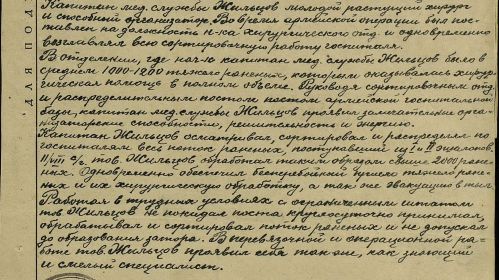 Капитан мед. службы Жильцов молодой растущий хирург
и способный организатор. Во время армейской операции был пос-
тавлен на должность н-ка хирургического отд. и одновременно
возглавлял всю сортировочную работу госпиталя.
В отделении, где нач-ю капитан мед. службы Жильцов было в
среднем 1000-1200 тяжело ранений, которым оказывалась хирур-
гическая помощь в полном объеме. Руководя сортировочным отд.
и распределительным постом армейской госпитальной
базы, капитан мед. службы Жильцов проявил замечательные орга-
низаторские способности, решительность и энергию.
Капитан Жильцов осматривал, сортировал и распределял по
госпиталям весь поток раненых, поступивший из I и II эшелонов.
тов. Жильцов обработал таким образом свыше 2000 ране-
ных. Одновременно обеспечил бесперебойный прием тяжело ране-
ных и их хирургическую обработку, а так же эвакуацию в тыл.
Работая в трудных условиях с ограниченным штатом
тов Жильцов не покидал поста круглосуточно принимал,
обрабатывал и сортировал поток раненых и не допускал
до образования затора. В перевязочной и операционной ра-
боте тов Жильцов проявил себя так же, как знающий
и смелый специалист.
ДЛЯ ПОД